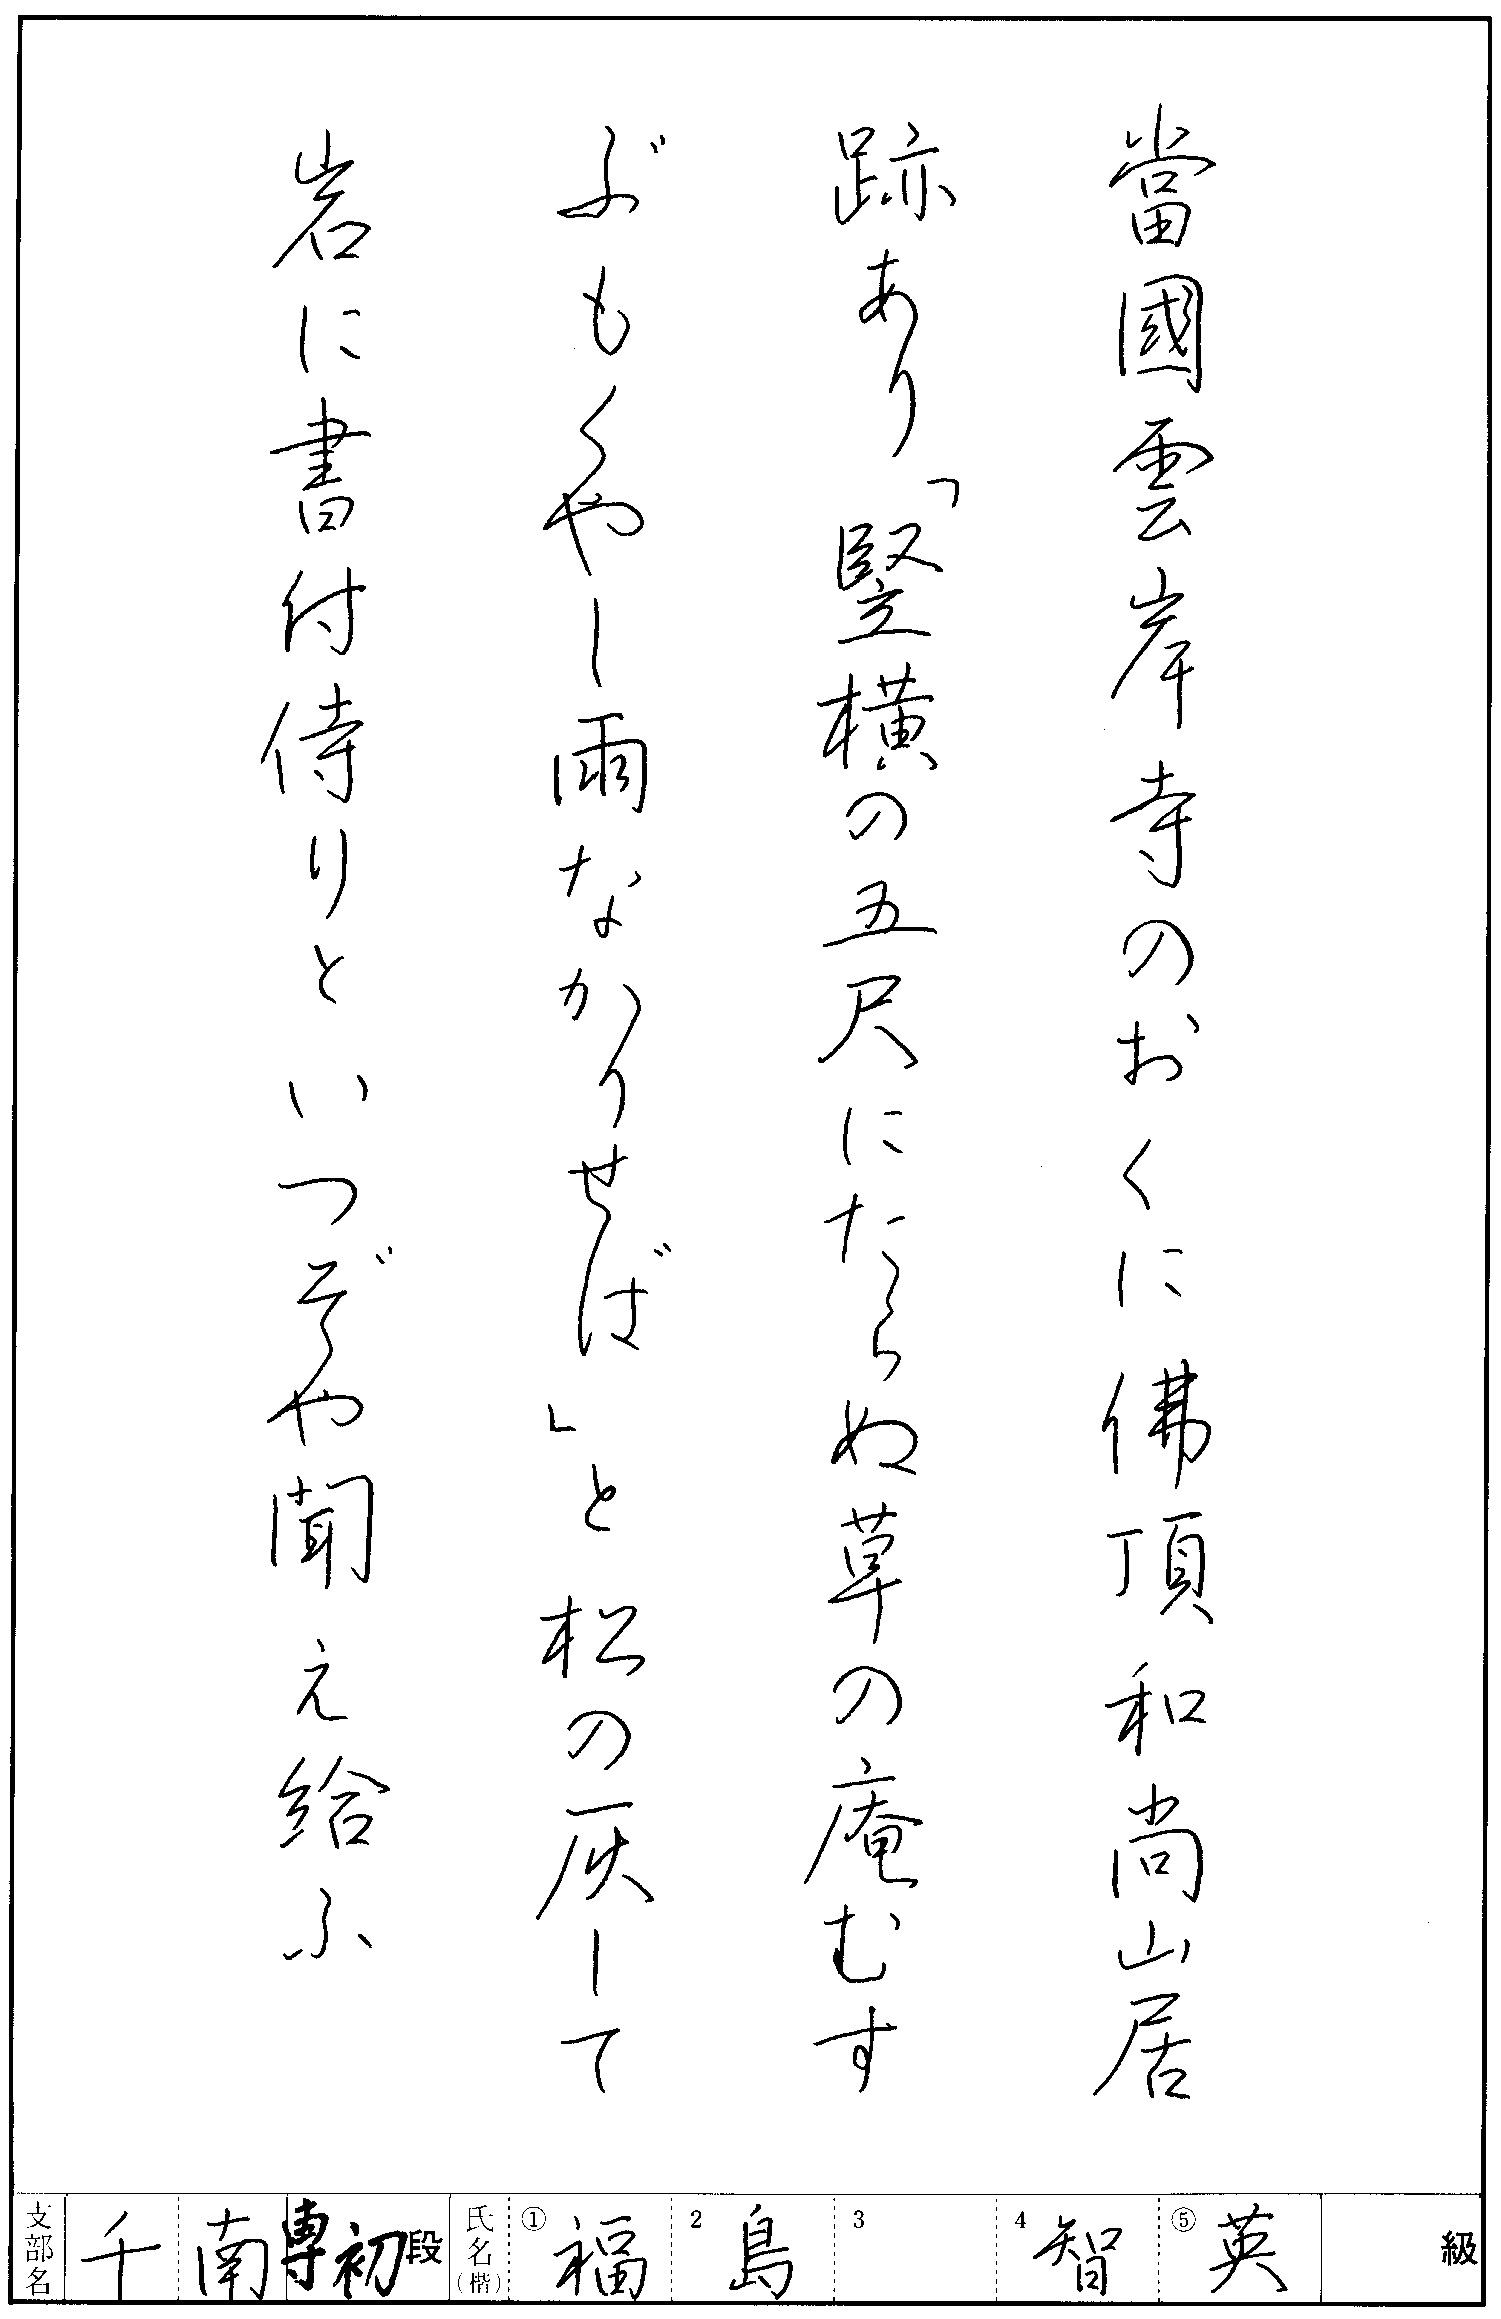 當國雲岸寺のおくに佛頂和尚山居
跡あり「竪横の五尺にたらぬ草の庵むす
ぶもくやし雨なかりせば」と松の灰して
岩に書付侍りといつぞや聞え給ふ
支部名 千南 專初段 氏名(楷) ①福 2島 3 4智 ⑤英 級